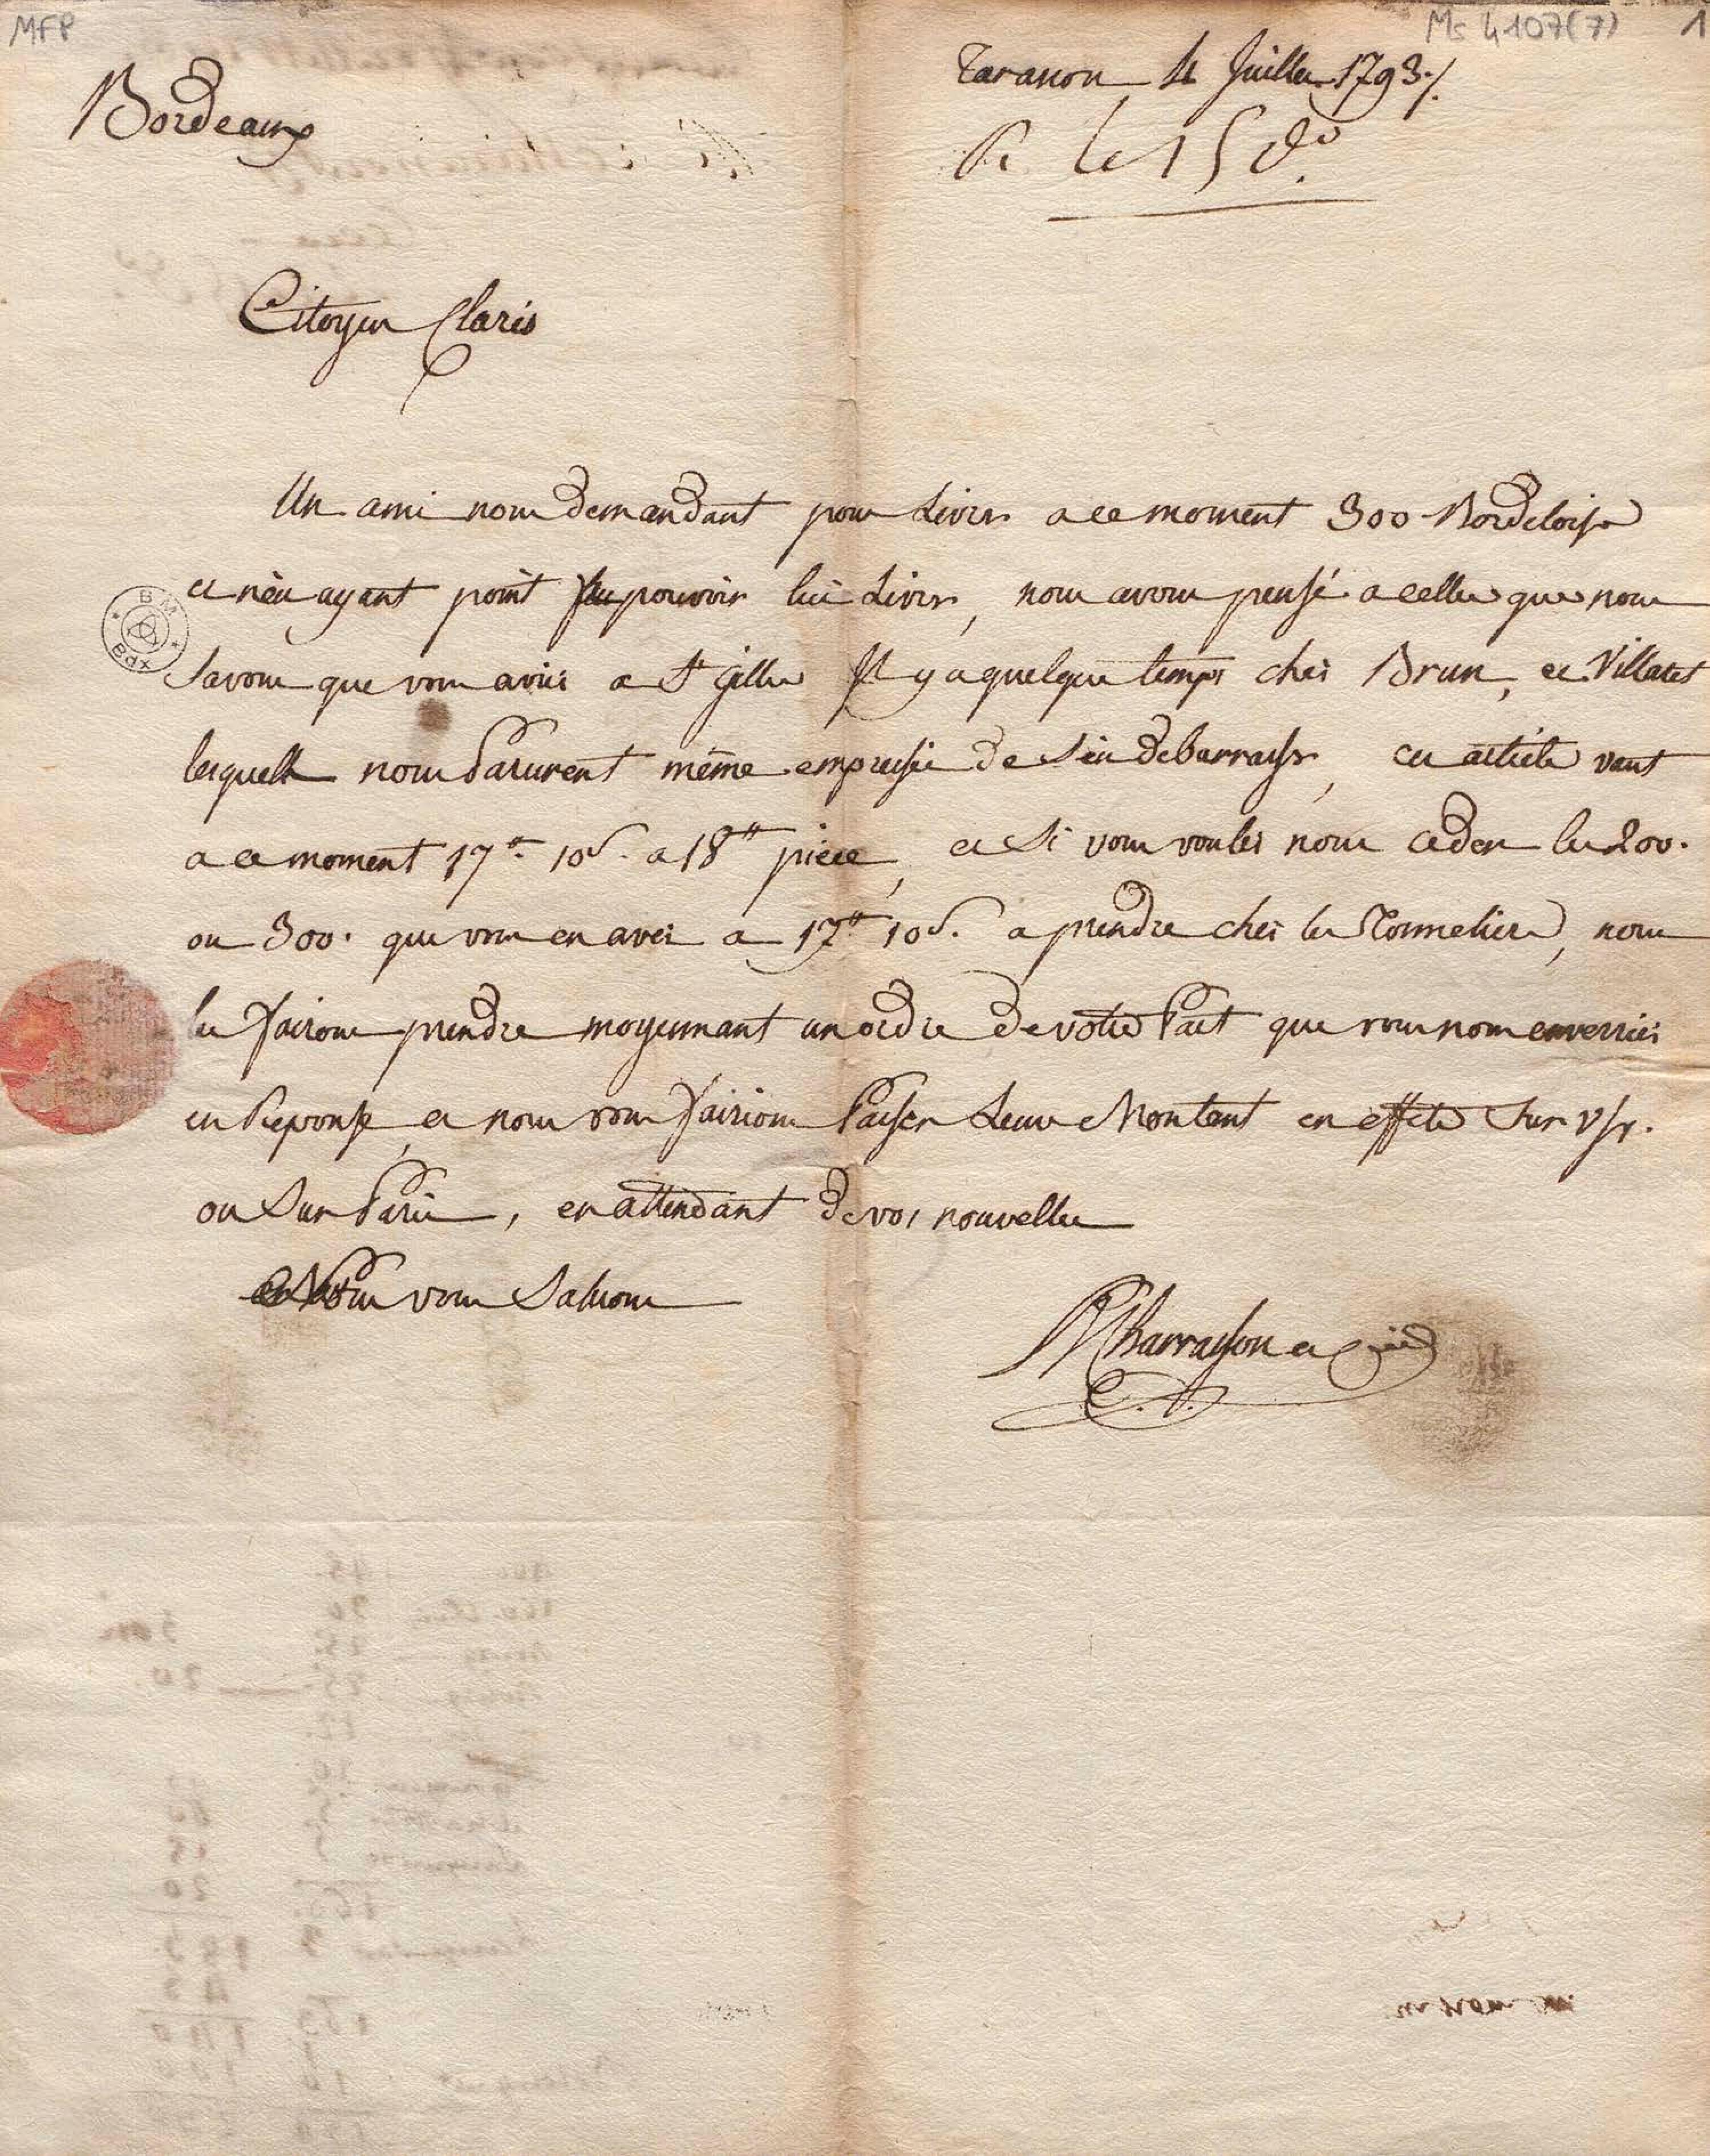 MFP
Ms 4107(7) 1
Tarascon 4 Juillet 1793 ./.
Bordeaux
R le 15 do
Citoyen Claris
Un ami nous demandant pour Livrer a ce moment 300 Bordeloises
et n'en ayant point pouvoir lui Livrer, nous avons pensé a celles que nous
Savons que vous aviés a St gilles Il y a quelque temps chés Brun, et Villaret
lesquels nous Parurent même empressés de S'en debarrasser, cet article vaut
a ce moment 17tt 10s. a 18tt piece, et Si vous voulés nous ceder les 200.
ou 300. que vous en avés a 17tt 10s. a prendre chés les Tonneliers, nous
les fairons prendre moyennant un ordre de votre Part que vous nous enverriés
en Reponse, et nous vous fairions Passer Leur Montant en effets Sur
ou Sur Paris, en attendant de vos nouvelles
Nous vous Saluons
Charrasson et Cie
BM
Bdx